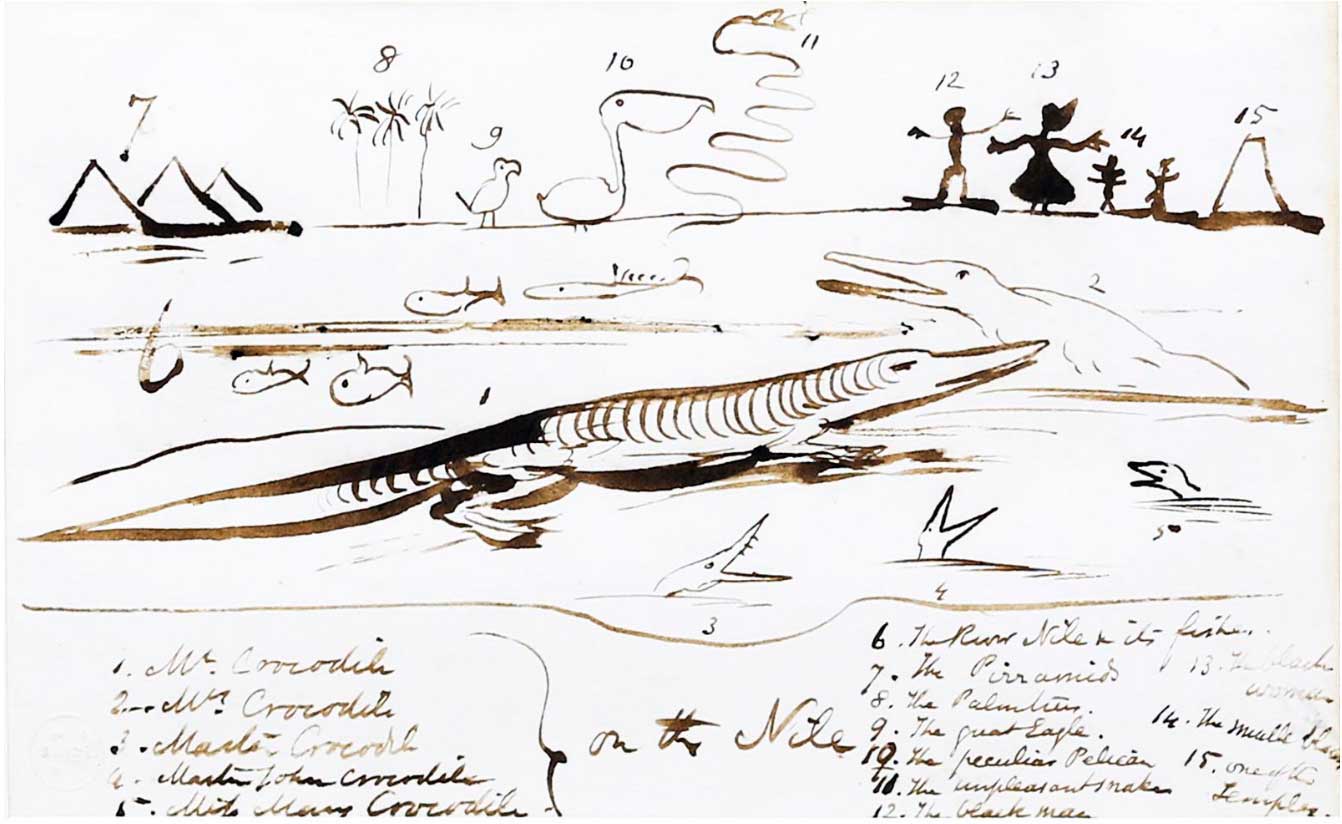 7
8
9
10
11
12
13
14
15
6
2
1
3
4
5
1. Mr. Crocodile
2. Mrs Crocodile
3. Master Crocodile
4. Master John Crocodile
5. Miss Mary Crocodile
on the Nile
6. The River Nile & its fishes.
7. The Pirramids
8. The Palmtrees.
9. The great Eagle.
10. The peculiar Pelican
11. The unpleasant snake
12. The black man
13. The black
woman
14. The smalle
15. one of the
Temples.